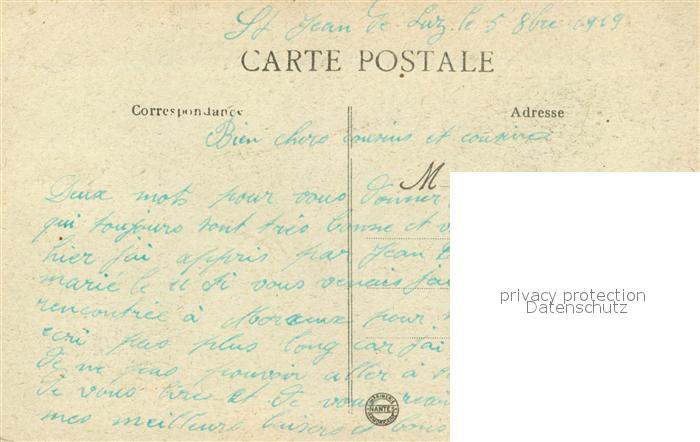 St Jean de Luz le 5 8bre 1919
CARTE POSTALE
Correspondance
Adresse
Bien chers cousins et cousines
M
Deux mots pour vous donner
qui toujours sont très bonne et
hier j'ai appris par Jean
marié le 11 si vous venais
rencontrée à pour
pas plus long car j'ai
de ne pas pouvoir aller à
Je vous et Je vous
mes meilleurs baisers bons
privacy protection
Datenschutz
NANTES